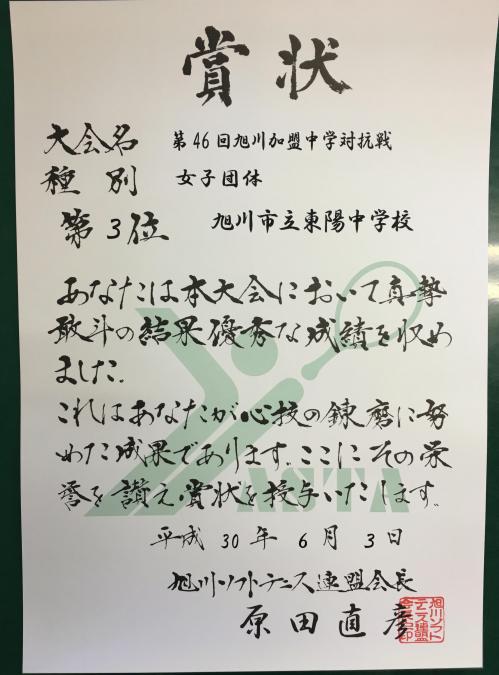 賞状
大会名 第46回旭川加盟中学対抗戦
種別 女子団体
第3位 旭川市立東陽中学校
あなたは本大会において真摯
敢斗の結果優秀な成績を収め
ました.
これはあなたが心技の錬磨に努
めた成果であります.ここにその栄
誉を讃え賞状を授与いたします.
ASTA
平成30年6月3日
旭川ソフトテニス連盟会長
原田直彦
旭川ソフト
テニス連盟
会長之印